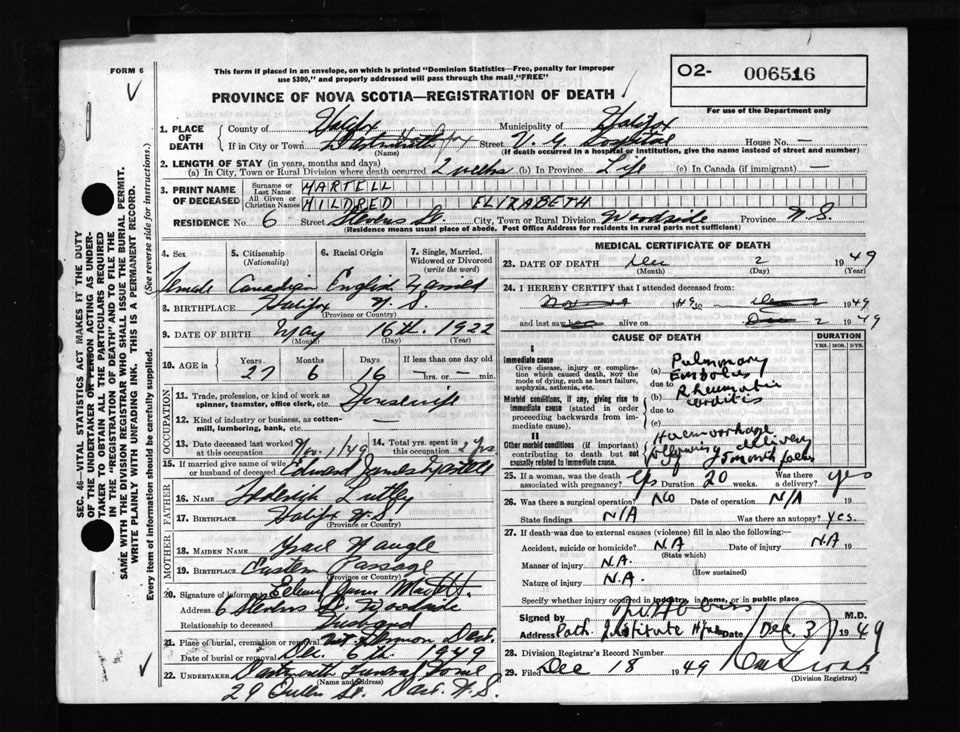 FORM 6
This form if placed in an envelope, on which is printed "Dominion Statistics—Free, penalty for improper
use $300," and properly addressed will pass through the mail "FREE"
O2- 006516
For use of the Department only
PROVINCE OF NOVA SCOTIA—REGISTRATION OF DEATH
1. PLACE OF DEATH
County of Halifax Municipality of Halifax
If in City or Town Dartmouth Hfx Street V. G. Hospital House No. —
(Name) (If death occurred in a hospital or institution, give the name instead of street and number)
2. LENGTH OF STAY (in years, months and days)
(a) In City, Town or Rural Division where death occurred 2 weeks (b) In Province Life (c) In Canada (if immigrant) —
3. PRINT NAME OF DECEASED
Surname or Last Name MARTELL
All Given or Christian Names MILDRED ELIZABETH
RESIDENCE No. 6 Street Stevens St. City, Town or Rural Division Woodside Province N.S.
(Residence means usual place of abode. Post Office Address for residents in rural parts not sufficient)
4. Sex 5. Citizenship (Nationality) 6. Racial Origin 7. Single, Married, Widowed or Divorced (write the word)
Female Canadian English Married
8. BIRTHPLACE Halifax N.S.
(Province or Country)
9. DATE OF BIRTH May 16th. 1922
(Month) (Day) (Year)
10. AGE in Years Months Days If less than one day old
27 6 16 —hrs. or — min.
OCCUPATION
11. Trade, profession, or kind of work as spinner, teamster, office clerk, etc. Housewife
12. Kind of industry or business, as cotton-mill, lumbering, bank, etc. —
13. Date deceased last worked at this occupation Nov. 1/49 14. Total yrs. spent in this occupation 2 yrs
15. If married give name of wife or husband of deceased Edward James Martell
FATHER
16. NAME Frederick Dutley
17. BIRTHPLACE Halifax N.S.
(Province or Country)
MOTHER
18. MAIDEN NAME Naugle
19. BIRTHPLACE Eastern Passage
(Province or Country)
20. Signature of informant James
Address 6 Stevens St. Woodside
Relationship to deceased Husband
21. Place of burial, cremation or removal Mt. Hermon Dart.
Date of burial or removal Dec. 6th. 1949
22. UNDERTAKER Dartmouth Funeral Home
(Name and address)
29 Queen St. Dart. N.S.
MEDICAL CERTIFICATE OF DEATH
23. DATE OF DEATH Dec 2 1949
(Month) (Day) (Year)
24. I HEREBY CERTIFY that I attended deceased from:
1949 to 1949
and last saw her alive on Dec 2 1949
CAUSE OF DEATH DURATION
YRS. MOS. DYS.
I
Immediate cause
Give disease, injury or complication which caused death, NOT the mode of dying, such as heart failure, asphyxia, asthenia, etc.
(a) Pulmonary Embolus
due to
Morbid conditions, if any, giving rise to immediate cause (stated in order proceeding backwards from immediate cause).
(b) Rheumatic carditis
due to
(c)
II
Other morbid conditions (if important) contributing to death but not causally related to immediate cause.
Haemorrhage following delivery of 5 month
25. If a woman, was the death associated with pregnancy? yes Duration 20 weeks. Was there a delivery? yes
26. Was there a surgical operation? NO Date of operation N/A 19
State findings N/A Was there an autopsy? yes.
27. If death was due to external causes (violence) fill in also the following:—
Accident, suicide or homicide? N.A Date of injury N.A 19
(State which)
Manner of injury N.A.
(How sustained)
Nature of injury N.A.
Specify whether injury occurred in industry, in home, or in public place
Signed by M.D.
Address Path. Institute Hfx Date Dec. 3 1949
28. Division Registrar's Record Number
29. Filed Dec 18 1949
(Division Registrar)
SEC. 46—VITAL STATISTICS ACT MAKES IT THE DUTY
OF THE UNDERTAKER OR PERSON ACTING AS UNDER-
TAKER TO OBTAIN ALL THE PARTICULARS REQUIRED
IN THE "REGISTRATION OF DEATH" AND TO FILE THE
SAME WITH THE DIVISION REGISTRAR WHO SHALL ISSUE THE BURIAL PERMIT.
WRITE PLAINLY WITH UNFADING INK. THIS IS A PERMANENT RECORD.
Every item of information should be carefully supplied. (See reverse side for instructions.)